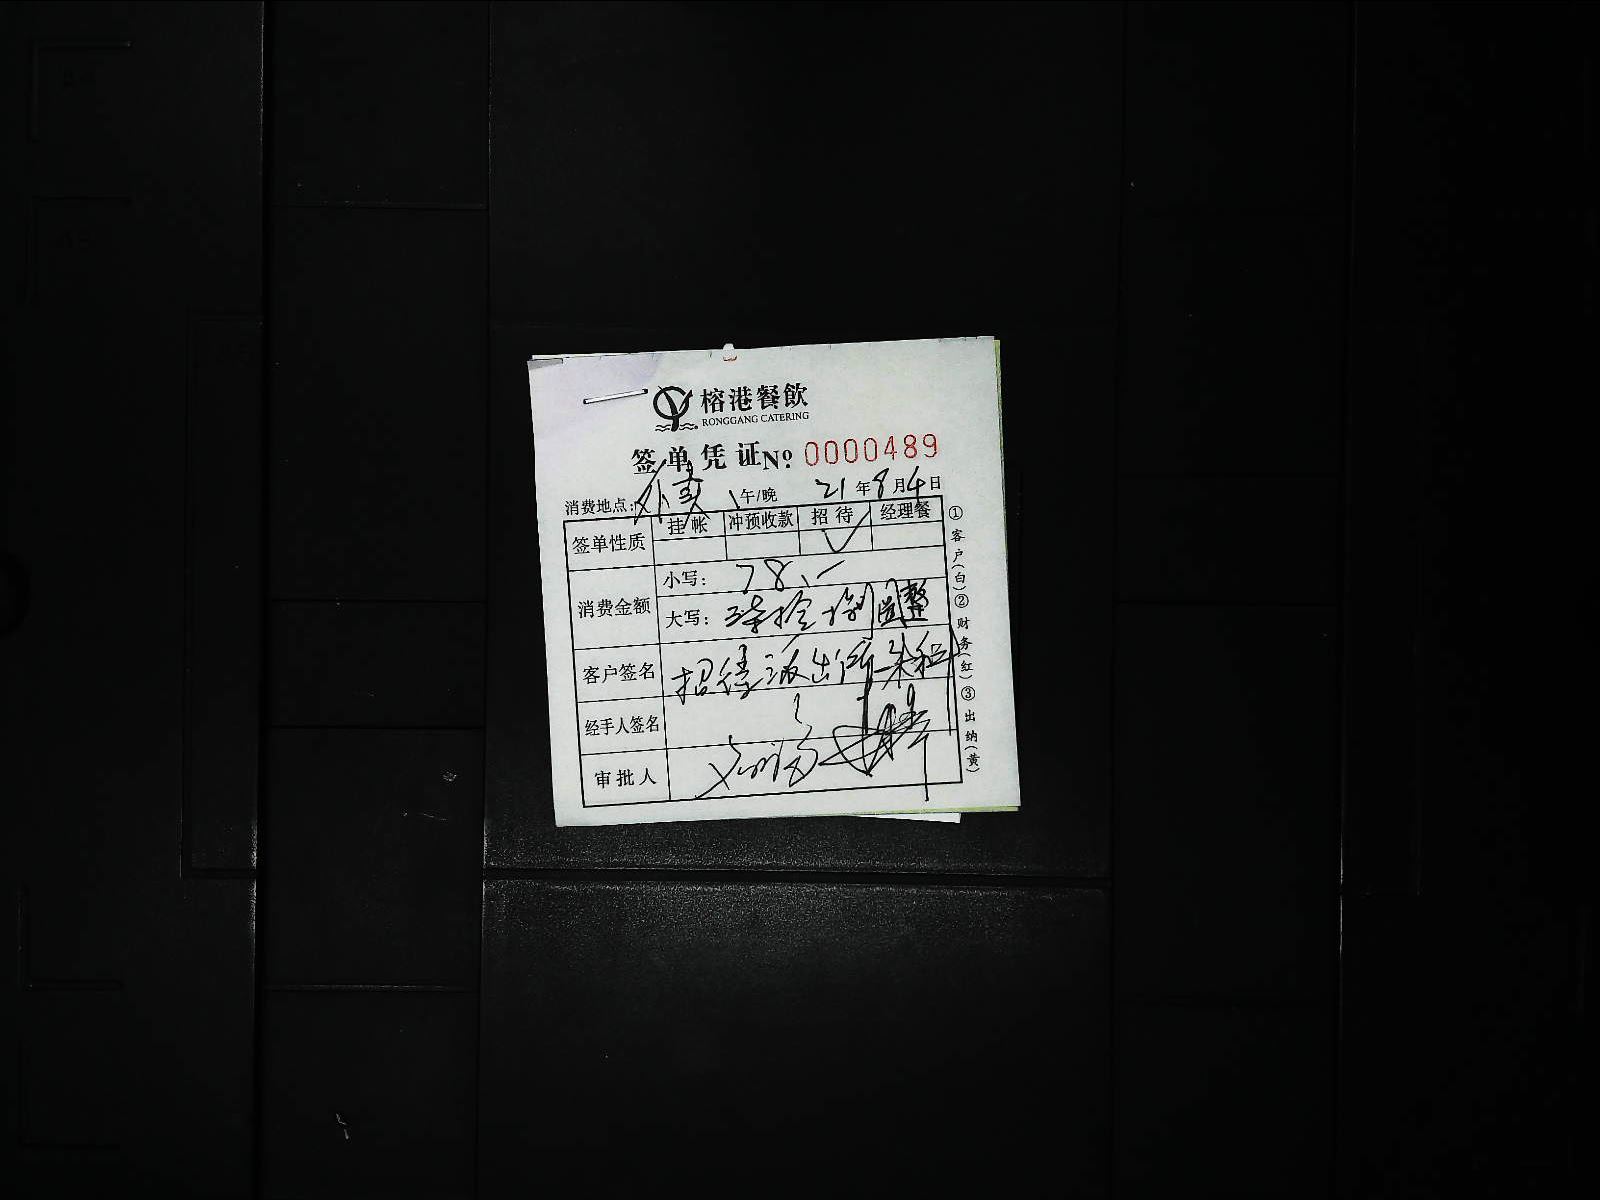 榕港餐飲
RONGGANG CATERING
签单凭证 № 0000489
消费地点: 外卖 午/晚 21年8月4日
签单性质 挂帐 冲预收款 招待 经理餐
✓
消费金额 小写: 78.-
大写: 柒拾捌圆整
客户签名 招待派出所
经手人签名
审批人
①客户(白)②财务(红)③出纳(黄)